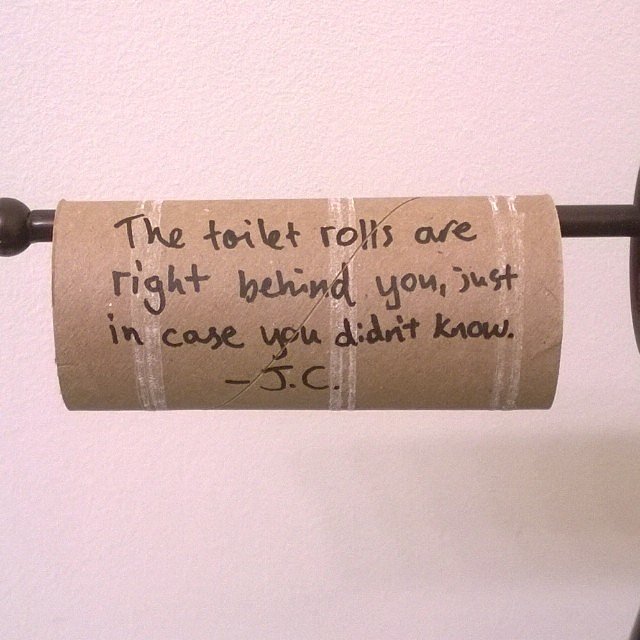 The toilet rolls are
right behind you, just
in case you didn't know.
- J.C.